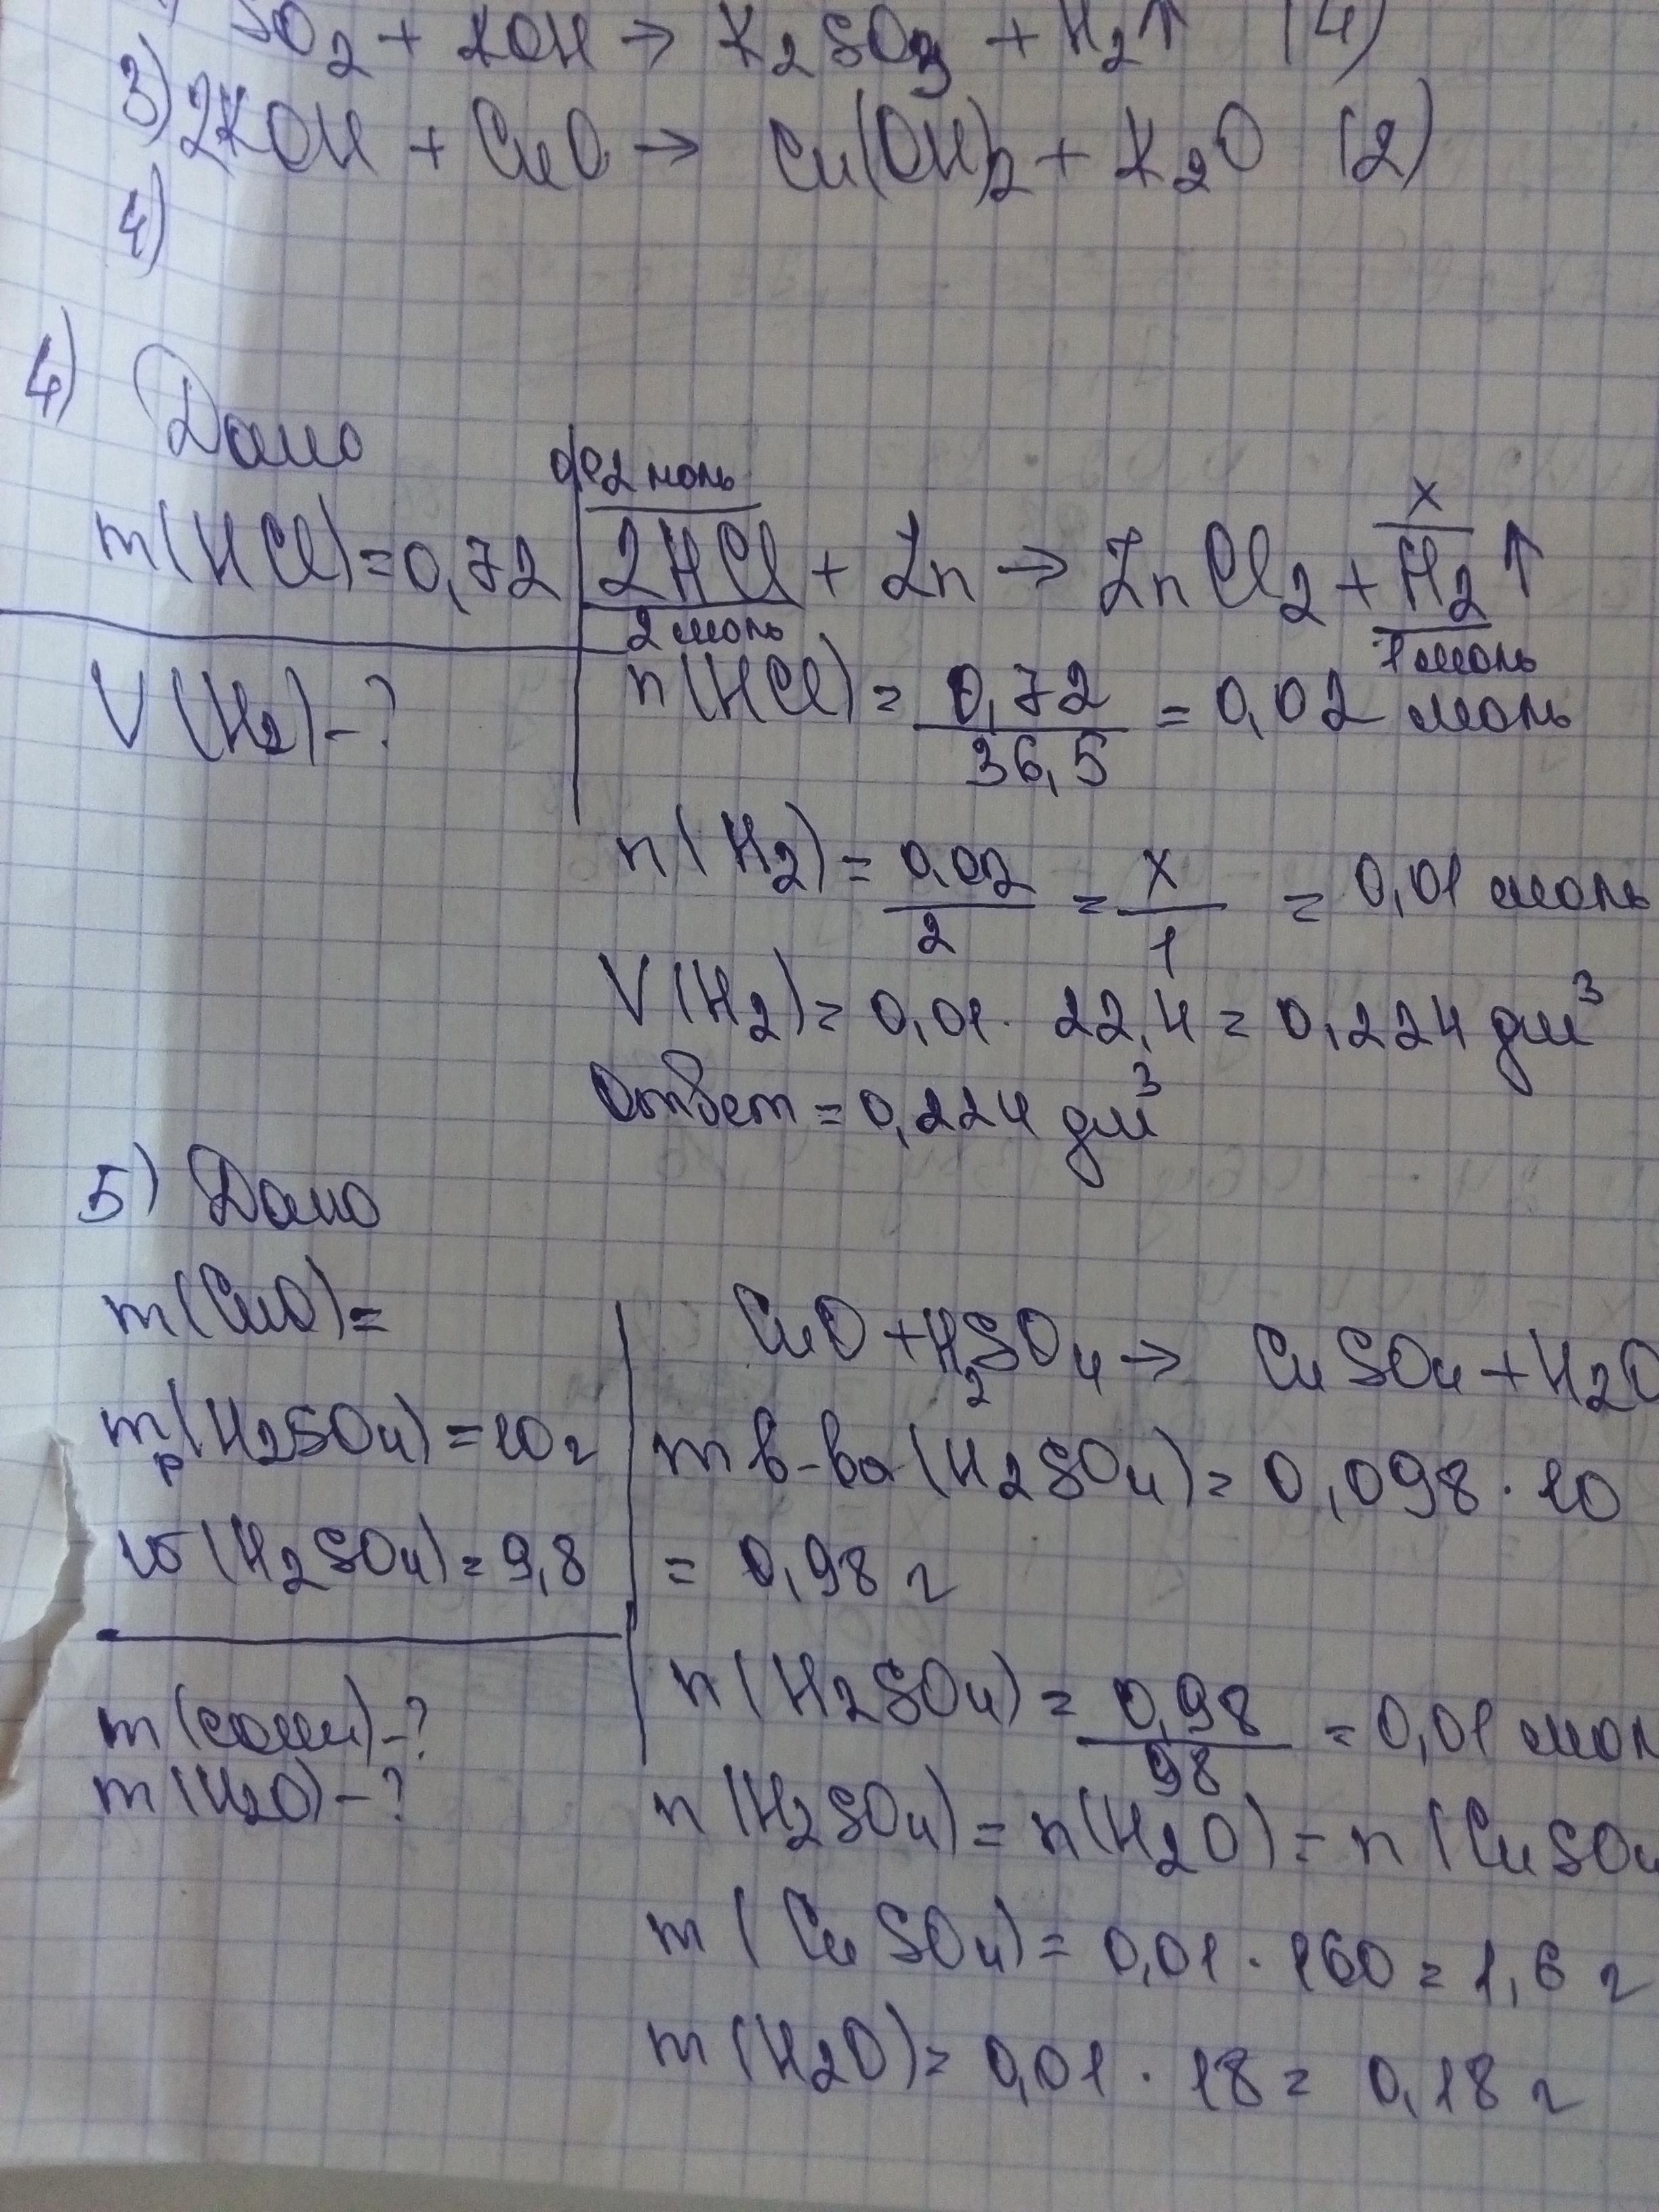 SO2 + KOH → K2SO3 + H2↑ (4)
3) 2KOH + CuO → Cu(OH)2 + K2O (2)
4)
4) Дано
m(HCl)=0,72
V(H2)-?
2 моль
x
2HCl + Zn → ZnCl2 + H2↑
2 моль
1 моль
n(HCl) = 0,72/36,5 = 0,02 моль
n(H2) = 0,02/2 = x/1 = 0,01 моль
V(H2) = 0,01 · 22,4 = 0,224 дм³
Ответ = 0,224 дм³
5) Дано
m(CuO)=
mр(H2SO4)=10г
w(H2SO4)=9,8
m(соли)-?
m(H2O)-?
CuO + H2SO4 → CuSO4 + H2O
m в-ва (H2SO4) = 0,098 · 10
= 0,98 г
n(H2SO4) = 0,98/98 = 0,01 мол
n(H2SO4) = n(H2O) = n(CuSO4
m(CuSO4) = 0,01 · 160 = 1,6 г
m(H2O) = 0,01 · 18 = 0,18 г